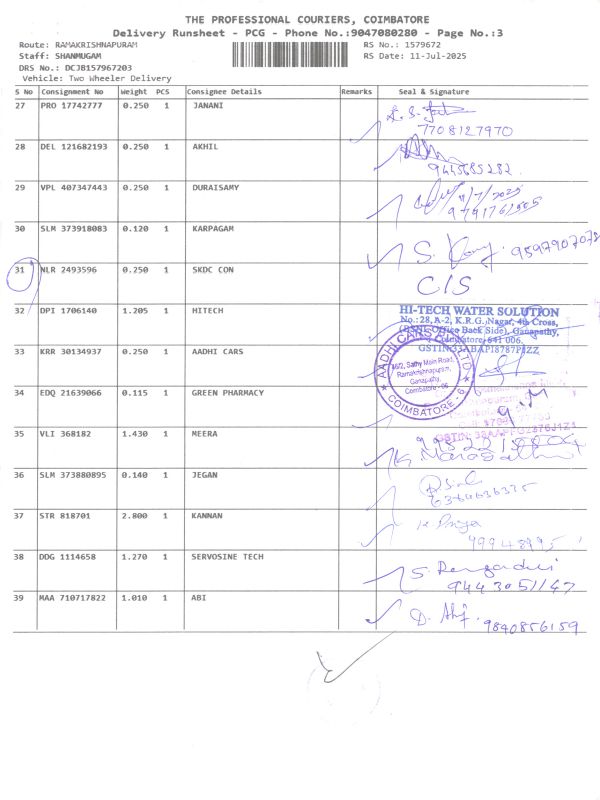 THE PROFESSIONAL COURIERS, COIMBATORE
Delivery Runsheet - PCG - Phone No.:9047080280 - Page No.:3
Route: RAMAKRISHNAPURAM RS No.: 1579672
Staff: SHANMUGAM RS Date: 11-Jul-2025
DRS No.: DCJB157967203
Vehicle: Two Wheeler Delivery
S No Consignment No Weight PCS Consignee Details Remarks Seal & Signature
27 PRO 17742777 0.250 1 JANANI
7708127970
28 DEL 121682193 0.250 1 AKHIL
9445685282
29 VPL 407347443 0.250 1 DURAISAMY
11/7/2025
30 SLM 373918083 0.120 1 KARPAGAM
9597907078
31 NLR 2493596 0.250 1 SKDC CON C/S
32 DPI 1706140 1.205 1 HITECH
HI-TECH WATER SOLUTION
No.:28, A-2, K.R.G. Nagar, 4th Cross,
(BSNL Office Back Side), Ganapathy,
Coimbatore-641 006.
33 KRR 30134937 0.250 1 AADHI CARS
AADHI CARS PVT LTD
Sathy Main Road,
Ramakrishnapuram,
Ganapathy,
Coimbatore - 06
COIMBATORE - 6
34 EDQ 21639066 0.115 1 GREEN PHARMACY
35 VLI 368182 1.430 1 MEERA
36 SLM 373880895 0.140 1 JEGAN
37 STR 818701 2.800 1 KANNAN
38 DDG 1114658 1.270 1 SERVOSINE TECH
9443051147
39 MAA 710717822 1.010 1 ABI
9840856159